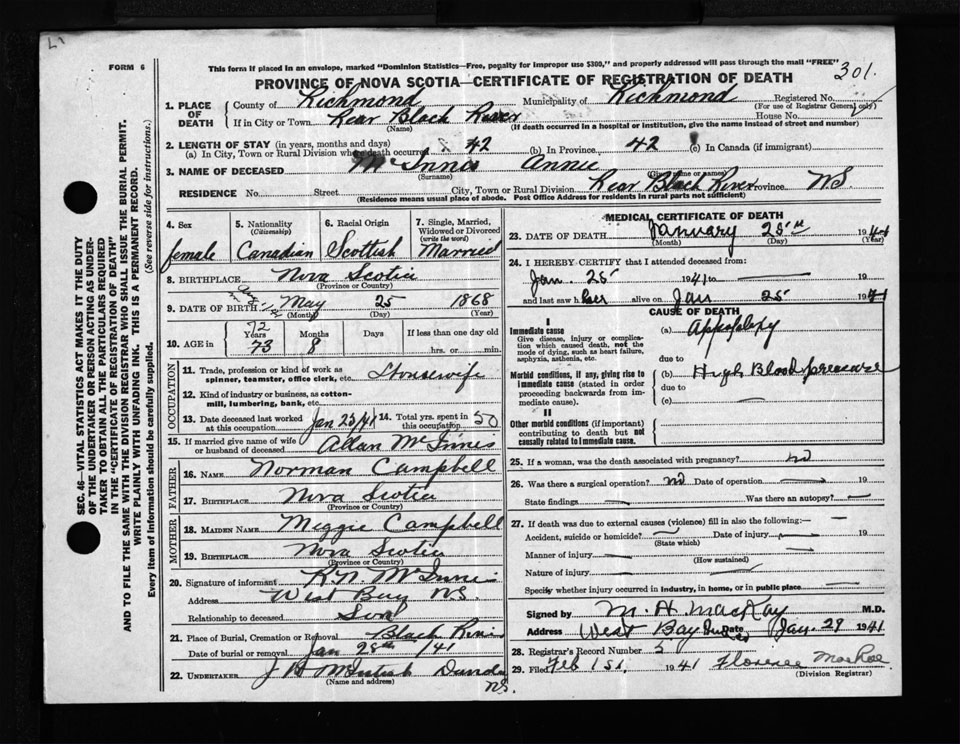 FORM 6
This form if placed in an envelope, marked "Dominion Statistics—Free, penalty for improper use $300," and properly addressed will pass through the mail "FREE"
PROVINCE OF NOVA SCOTIA—CERTIFICATE OF REGISTRATION OF DEATH
301.
1. PLACE OF DEATH
County of Richmond Municipality of Richmond Registered No.
(For use of Registrar General only)
If in City or Town Rear Black River House No.
(Name) (If death occurred in a hospital or institution, give the name instead of street and number)
2. LENGTH OF STAY (in years, months and days)
(a) In City, Town or Rural Division where death occurred 42 (b) In Province 42 (c) In Canada (if immigrant)
3. NAME OF DECEASED McInnis Annie
(Surname) (Given name or names)
RESIDENCE No. Street City, Town or Rural Division Rear Black River Province N.S.
(Residence means usual place of abode. Post Office Address for residents in rural parts not sufficient)
4. Sex female
5. Nationality (Citizenship) Canadian
6. Racial Origin Scottish
7. Single, Married, Widowed or Divorced (write the word) Married
8. BIRTHPLACE Nova Scotia
(Province or Country)
9. DATE OF BIRTH May 25 1868
(Month) (Day) (Year)
10. AGE in Years 72 73 Months 8 Days If less than one day old hrs. or min.
OCCUPATION
11. Trade, profession or kind of work as spinner, teamster, office clerk, etc. Housewife
12. Kind of industry or business, as cotton-mill, lumbering, bank, etc.
13. Date deceased last worked at this occupation Jan 25/41 14. Total yrs. spent in this occupation 50
15. If married give name of wife or husband of deceased Allan McInnis
FATHER
16. NAME Norman Campbell
17. BIRTHPLACE Nova Scotia
(Province or Country)
MOTHER
18. MAIDEN NAME Meggie Campbell
19. BIRTHPLACE Nova Scotia
(Province or Country)
20. Signature of informant McInnis
Address West Bay N.S.
Relationship to deceased Son
21. Place of Burial, Cremation or Removal Black River
Date of burial or removal Jan 28th /41
22. UNDERTAKER J. McIntosh Dundee N.S.
(Name and address)
MEDICAL CERTIFICATE OF DEATH
23. DATE OF DEATH January 25th 1941
(Month) (Day) (Year)
24. I HEREBY CERTIFY that I attended deceased from:
Jan. 25 1941 to 19
and last saw her alive on Jan 25 1941
CAUSE OF DEATH
I
Immediate cause
Give disease, injury or complication which caused death, not the mode of dying, such as heart failure, asphyxia, asthenia, etc.
(a) Appoplexy
due to
Morbid conditions, if any, giving rise to immediate cause (stated in order proceeding backwards from immediate cause).
(b) High Blood pressure
due to
(c)
II
Other morbid conditions (if important) contributing to death but not causally related to immediate cause.
25. If a woman, was the death associated with pregnancy? no
26. Was there a surgical operation? no Date of operation 19
State findings Was there an autopsy?
27. If death was due to external causes (violence) fill in also the following:—
Accident, suicide or homicide? Date of injury 19
(State which)
Manner of injury
(How sustained)
Nature of injury
Specify whether injury occurred in industry, in home, or in public place
Signed by M. A. MacKay M.D.
Address West Bay Date Jan. 29 1941
28. Registrar's Record Number 5
29. Filed Feb 1st 1941 Florence MacRae
(Division Registrar)
SEC. 46—VITAL STATISTICS ACT MAKES IT THE DUTY
OF THE UNDERTAKER OR PERSON ACTING AS UNDER-
TAKER TO OBTAIN ALL THE PARTICULARS REQUIRED
IN THE "CERTIFICATE OF REGISTRATION OF DEATH"
AND TO FILE THE SAME WITH THE DIVISION REGISTRAR WHO SHALL ISSUE THE BURIAL PERMIT.
WRITE PLAINLY WITH UNFADING INK. THIS IS A PERMANENT RECORD.
Every item of information should be carefully supplied. (See reverse side for instructions.)